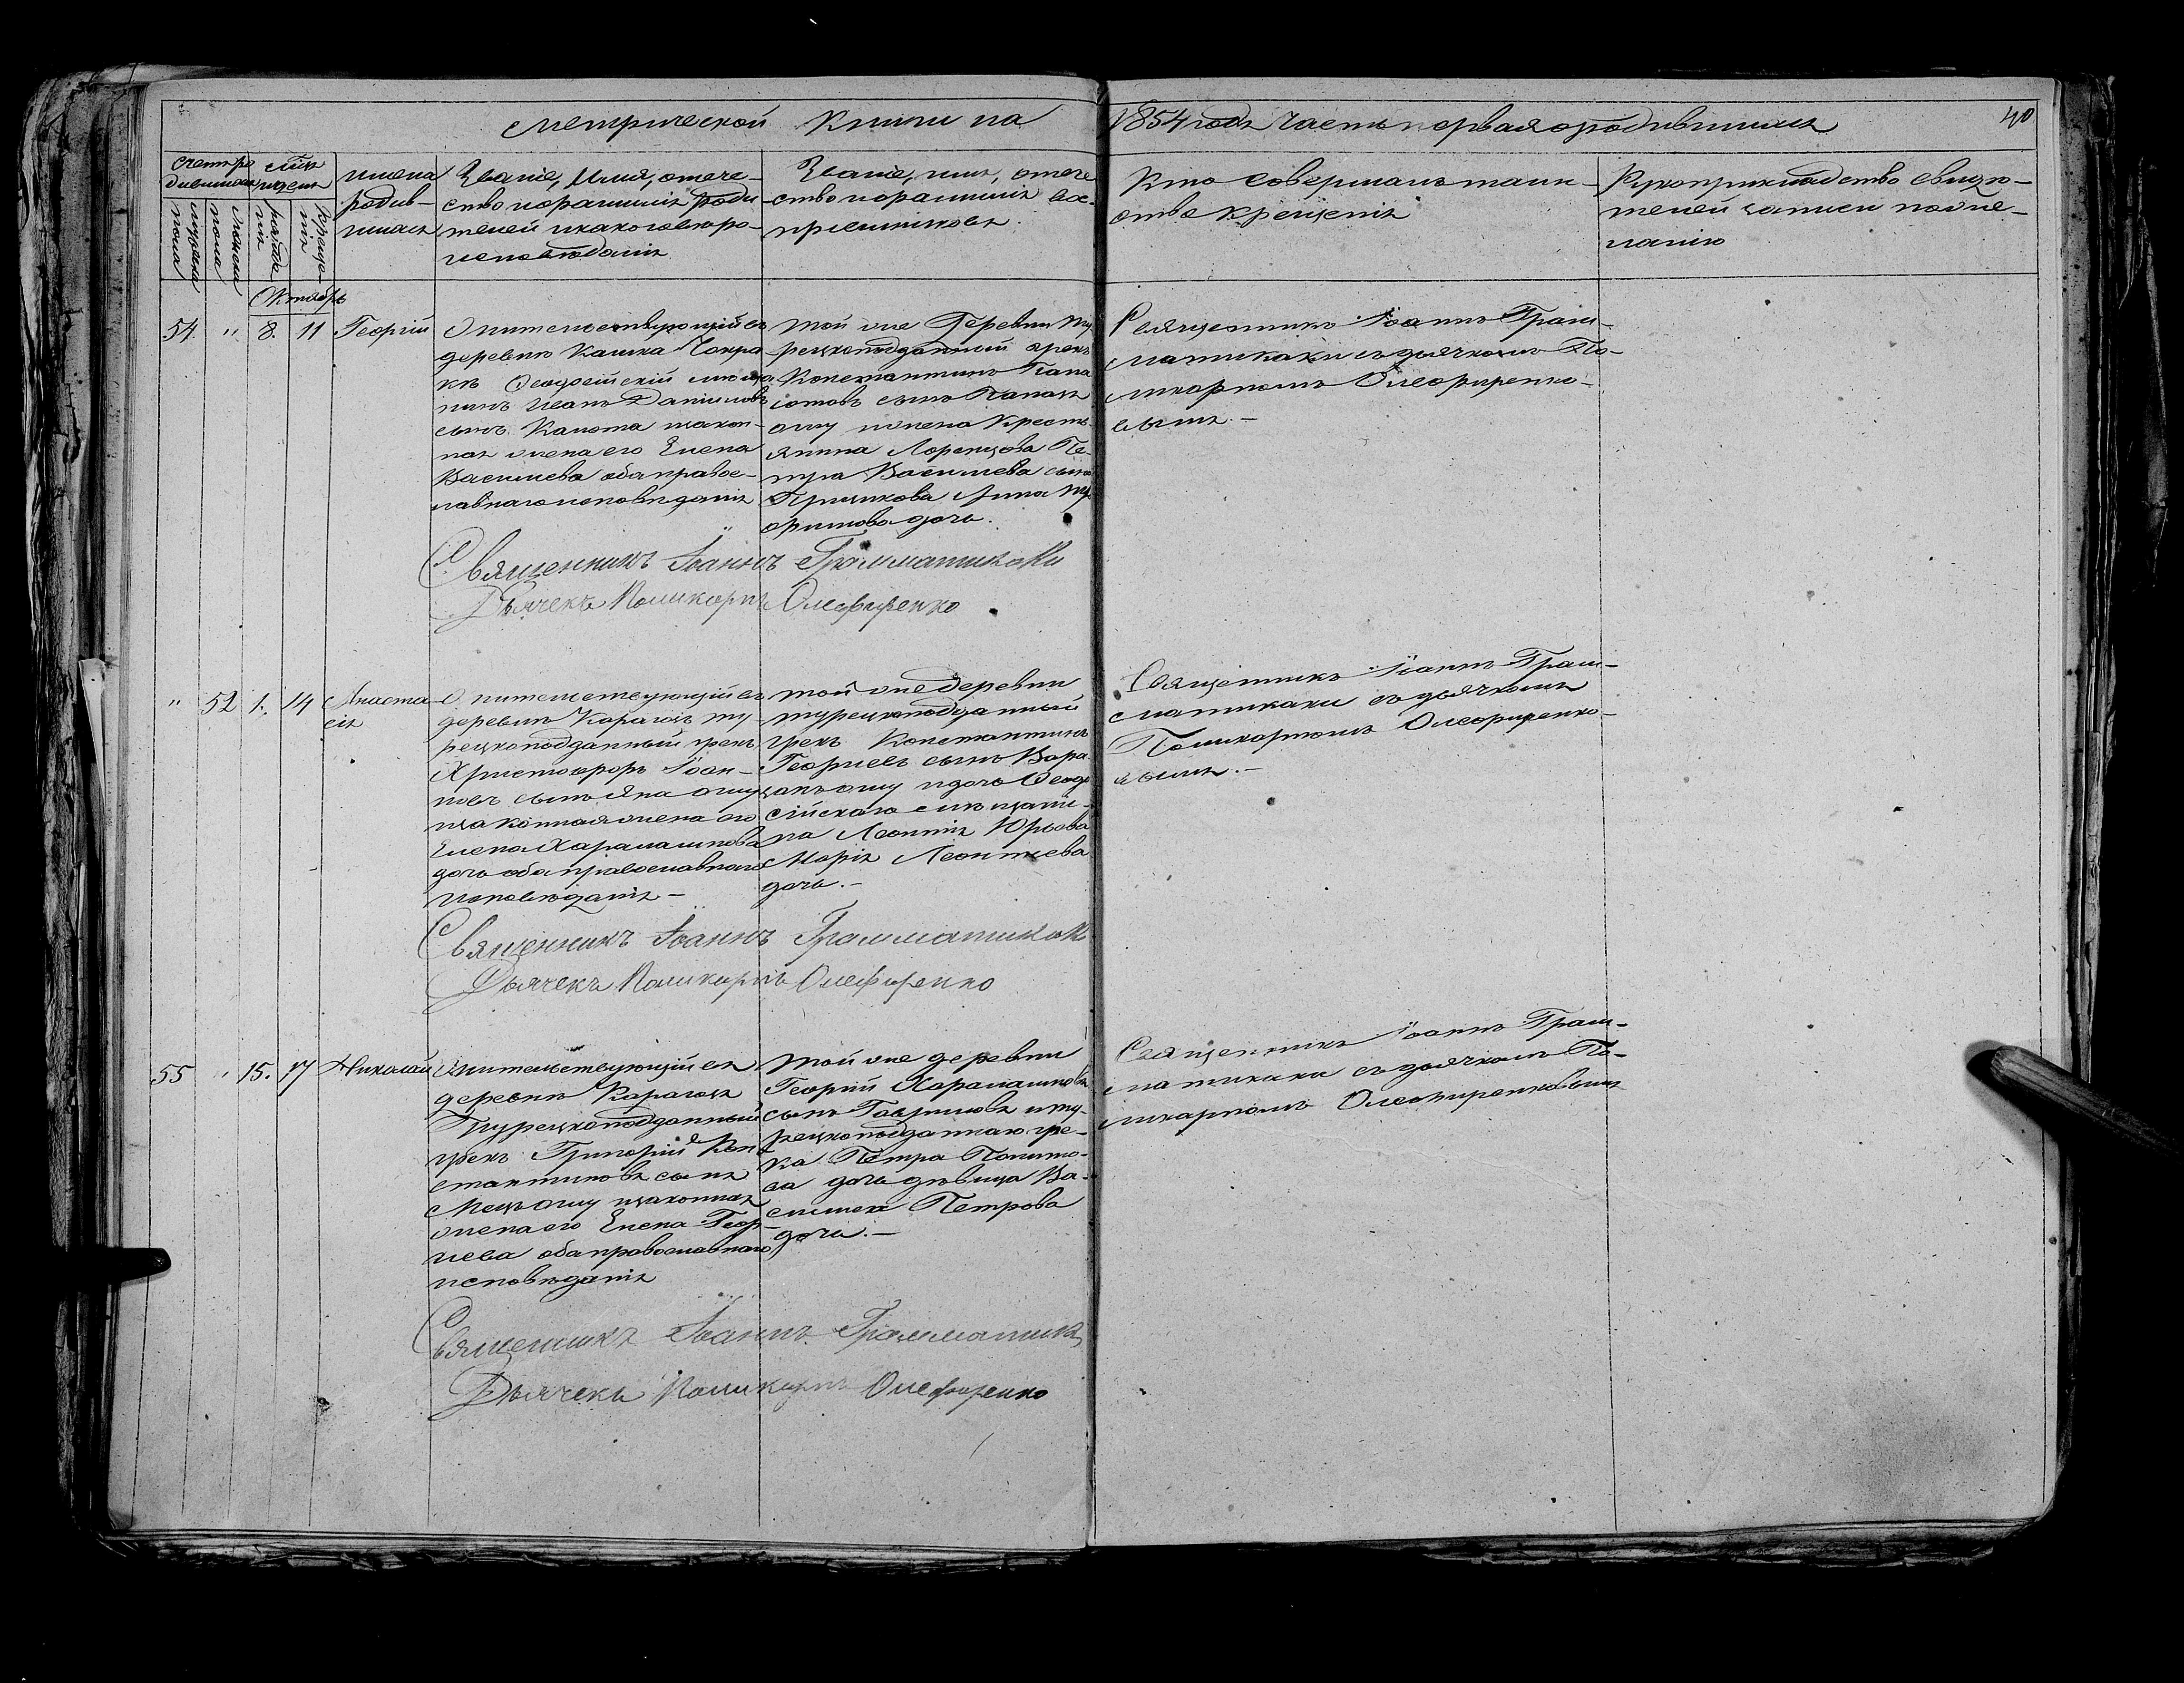 Метрической книги на 1854 годъ часть первая о родившихся
40
Счетъ ро
дившихся
мужеска
пола
женска
пола
Мѣсяцъ
и день
рожде
нія
креще
нія
имена
родив-
шихся
Званіе, Имя, отече-
ство и фамилія роди
телей и какого вѣро-
исповѣданія
Званіе, имя, отече
ство и фамилія вос-
пріемниковъ
Кто совершалъ таин-
ство крещенія
Рукоприкладство свидѣ-
телей записи по же-
ланію
Октябрь
54. " 8. 11 Георгій
Жительствующій въ
деревнѣ Кашка Чокра
къ Феодосійскій мѣща
нинъ Иванъ Даниловъ
сынъ Калота закон-
ная жена его Елена
Васильева оба правос-
лавнаго исповѣданія
той же Деревни ту
рецкоподданный грекъ
Константинъ Пана
іотовъ сынъ
оглу и жена Кресть
янина Пе-
тра Васильева сына
Анна
дочь.
Священникъ Іоаннъ Грам-
матикаки съ дьячкомъ По-
ликарпомъ Олефиренко-
вымъ. -
Священникъ Іоаннъ Грамматикаки
Дьячекъ Поликарпъ Олефиренко
" 52 1. 14 Анаста
сія
Жительствующій въ
деревнѣ Карагозъ ту-
рецкоподданный грекъ
Христофоръ Іоан-
новъ сынъ оглу
законная жена его
Елена Харалампова
дочь оба православнаго
исповѣданія -
той же деревни
турецкоподданный
грекъ Константинъ
Георгіевъ сынъ
оглу и дочь Феодо
сійскаго мѣщани-
на Леонтія Юрьева
Марія Леонтьева
дочь. -
Священникъ Іоаннъ Грам-
матикаки съ дьячкомъ
Поликарпомъ Олефиренко-
вымъ. -
Священникъ Іоаннъ Грамматикаки
Дьячекъ Поликарпъ Олефиренко
55 " 15. 17 Николай
Жительствующій въ
деревнѣ Карагозъ
Турецкоподданный
грекъ Григорій Кон
стантиновъ сынъ
оглу законная
жена его Елена Геор-
гіева оба православнаго
исповѣданія
той же деревни
Георгій Хараламповъ
сынъ Гавриловъ и ту-
рецкоподданнаго гре-
ка Петра
ва дочь дѣвица Ва-
силиса Петрова
дочь. -
Священникъ Іоаннъ Грам-
матикаки съ дьячкомъ По-
ликарпомъ Олефиренковымъ
Священникъ Іоаннъ Грамматикаки
Дьячекъ Поликарпъ Олефиренко